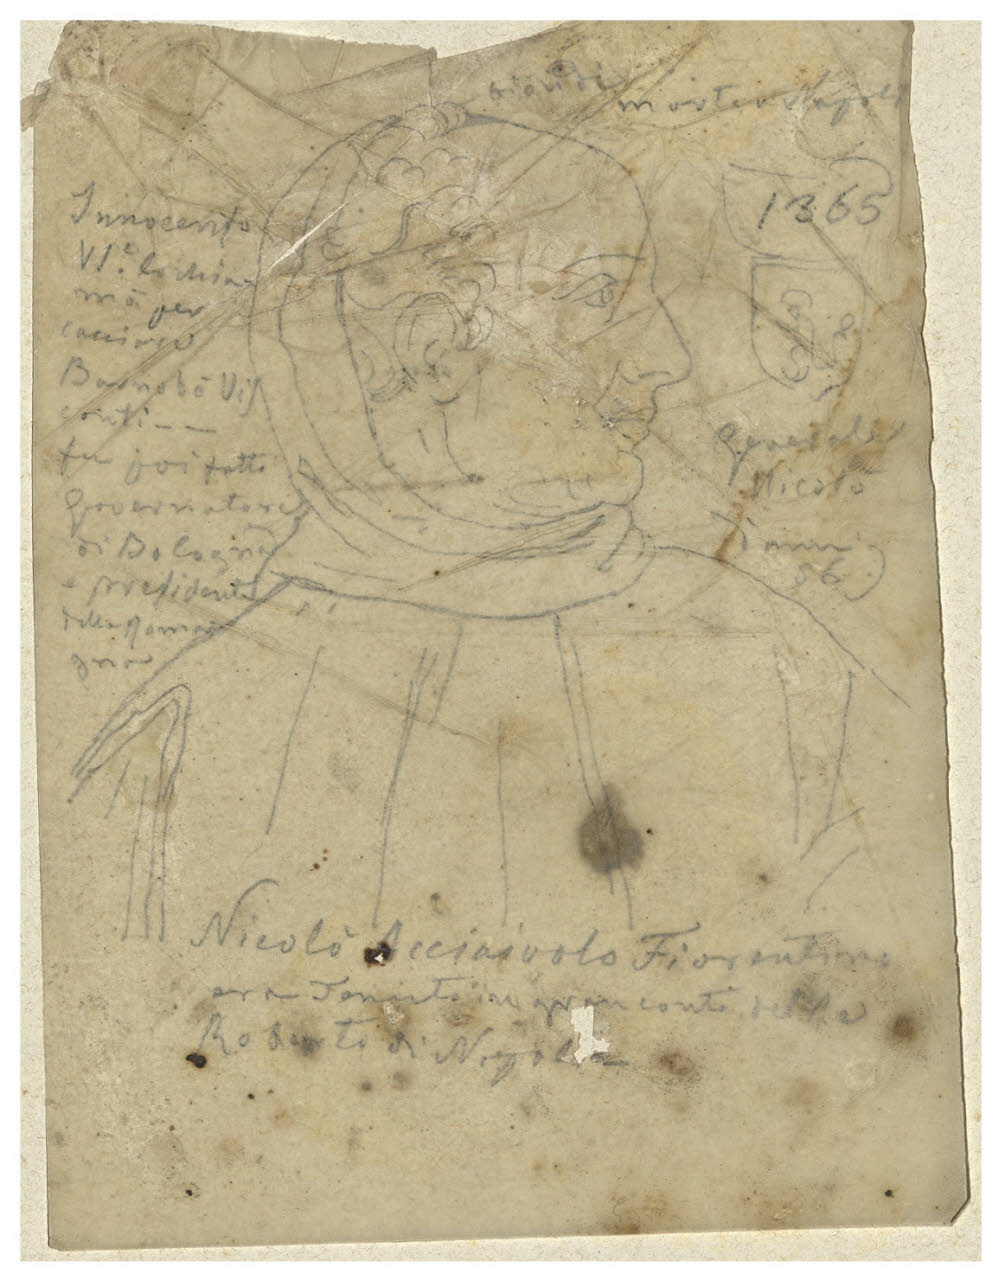 morto a Napoli
1365
Innocento
VI.º lo chia-
mò per
cacciare
Barnobò Vis
conti --
fu poi fatto
Governatore
di Bologna
e presidente
della Roma
gna
Generale
Nicolò
d'anni
56
Nicolò Acciaivolo Fiorentino
era Tenuto in gran conto del Re
Roberto di Napoli